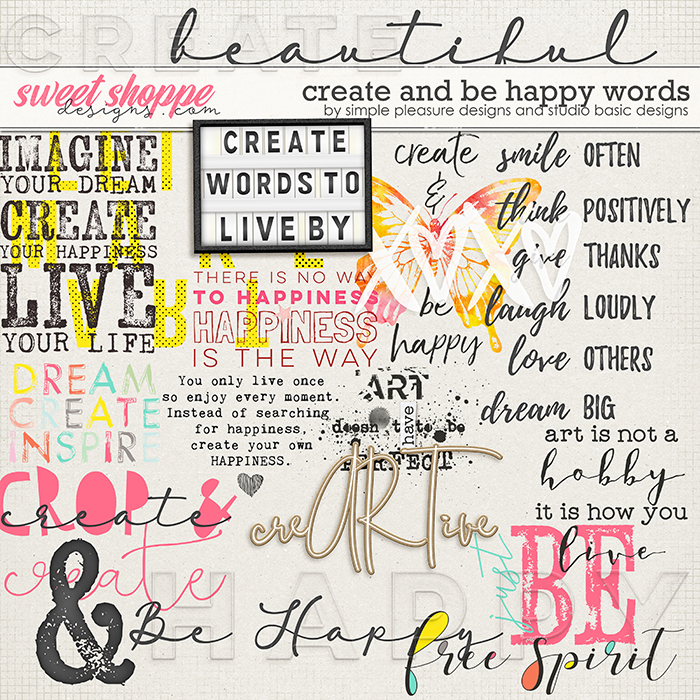 CREATE
beautiful
sweet shoppe
designs.com
create and be happy words
by simple pleasure designs and studio basic designs
IMAGINE
YOUR DREAM
CREATE
YOUR HAPPINESS
LIVE
YOUR LIFE
CREATE
WORDS TO
LIVE BY
create
&
be
happy
XOXO
smile OFTEN
think POSITIVELY
give THANKS
laugh LOUDLY
love OTHERS
dream BIG
THERE IS NO WAY
TO HAPPINESS
HAPPINESS
IS THE WAY
DREAM
CREATE
INSPIRE
You only live once
so enjoy every moment.
Instead of searching
for happiness,
create your own
HAPPINESS.
ART
doesn't have to be
PERFECT
art is not a
hobby
it is how you
live
CROP &
create
create
creARTive
just
BE
HAPPY
&
Be Happy
free spirit